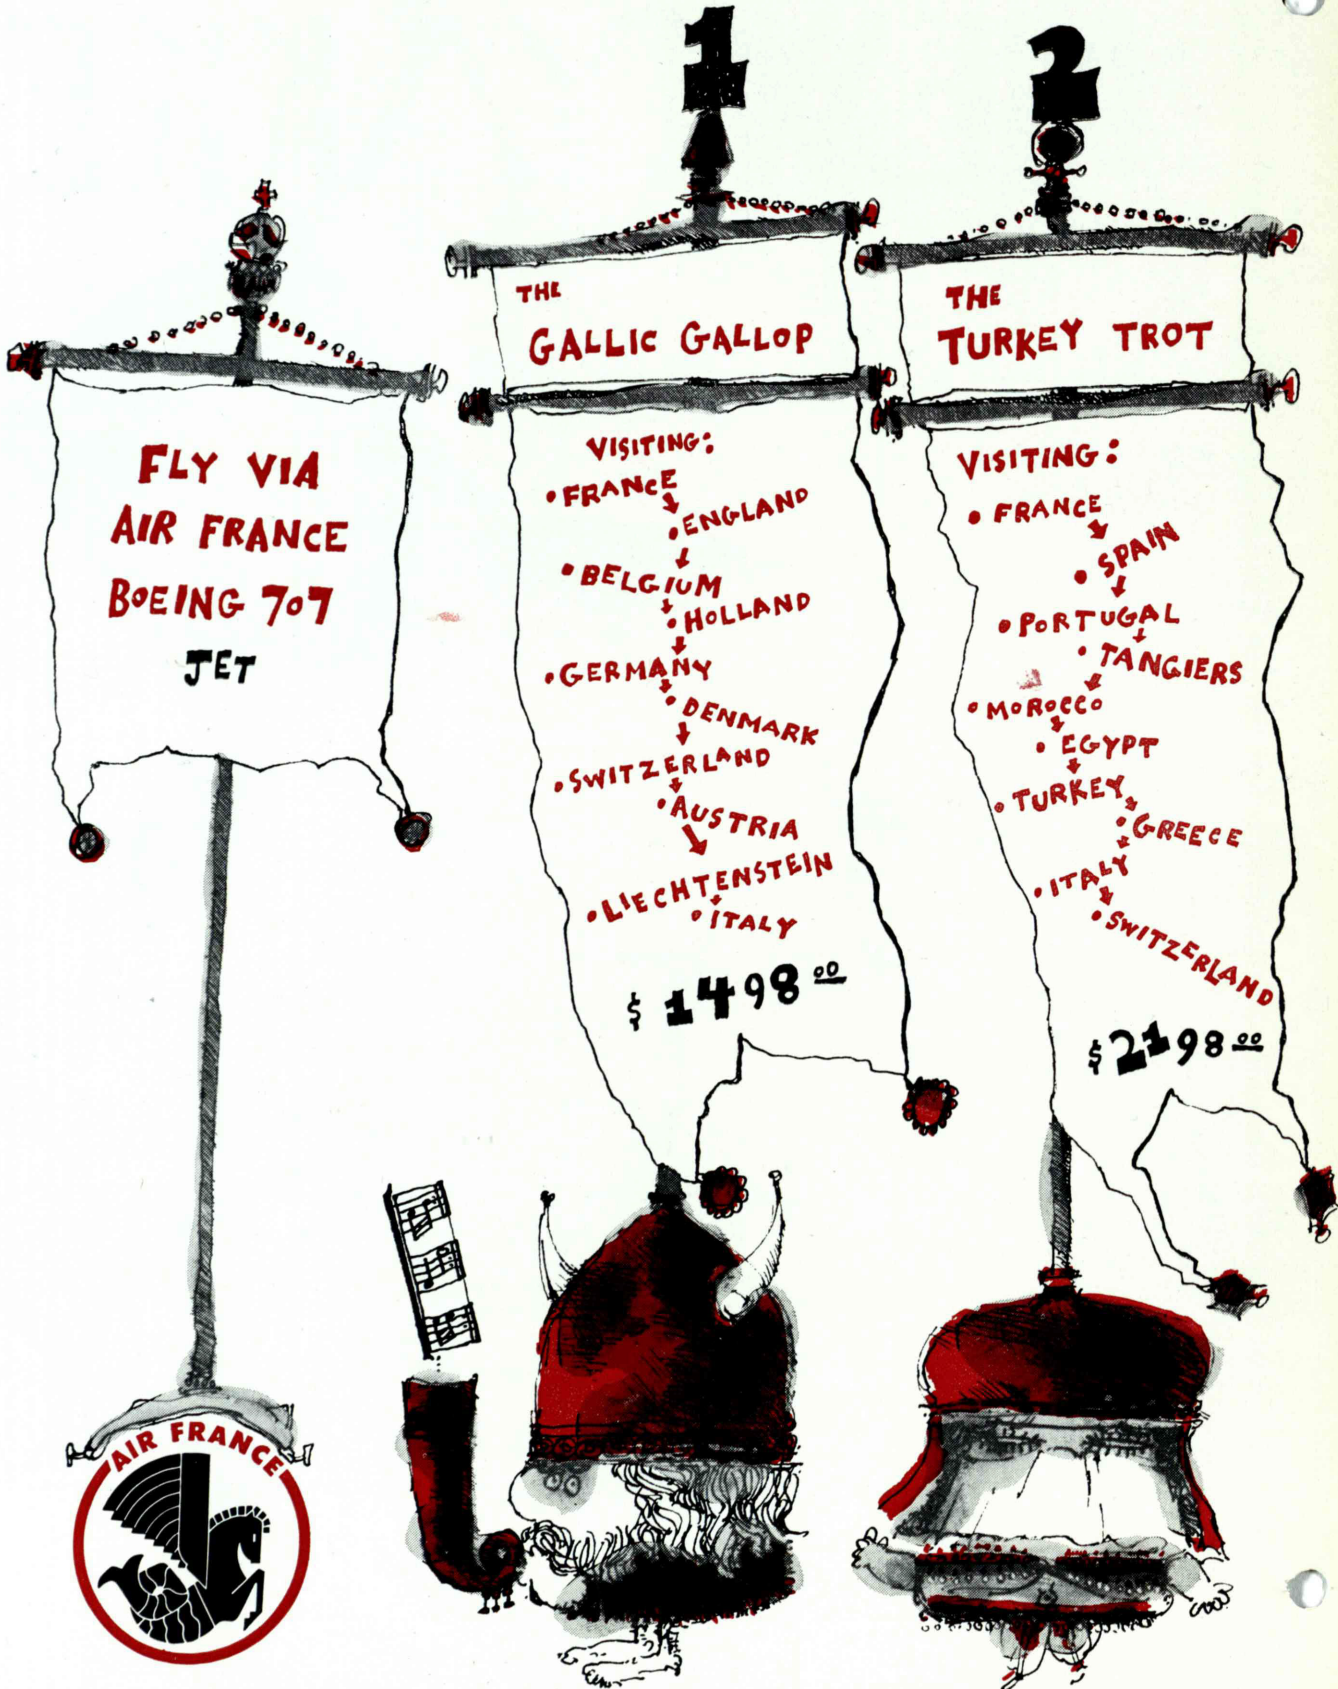 FLY VIA
AIR FRANCE
BOEING 707
JET
AIR FRANCE
1
THE
GALLIC GALLOP
VISITING:
• FRANCE
• ENGLAND
• BELGIUM
• HOLLAND
• GERMANY
• DENMARK
• SWITZERLAND
• AUSTRIA
• LIECHTENSTEIN
• ITALY
$ 1498 00
2
THE
TURKEY TROT
VISITING:
• FRANCE
• SPAIN
• PORTUGAL
• TANGIERS
• MOROCCO
• EGYPT
• TURKEY
• GREECE
• ITALY
• SWITZERLAND
$ 2198 00